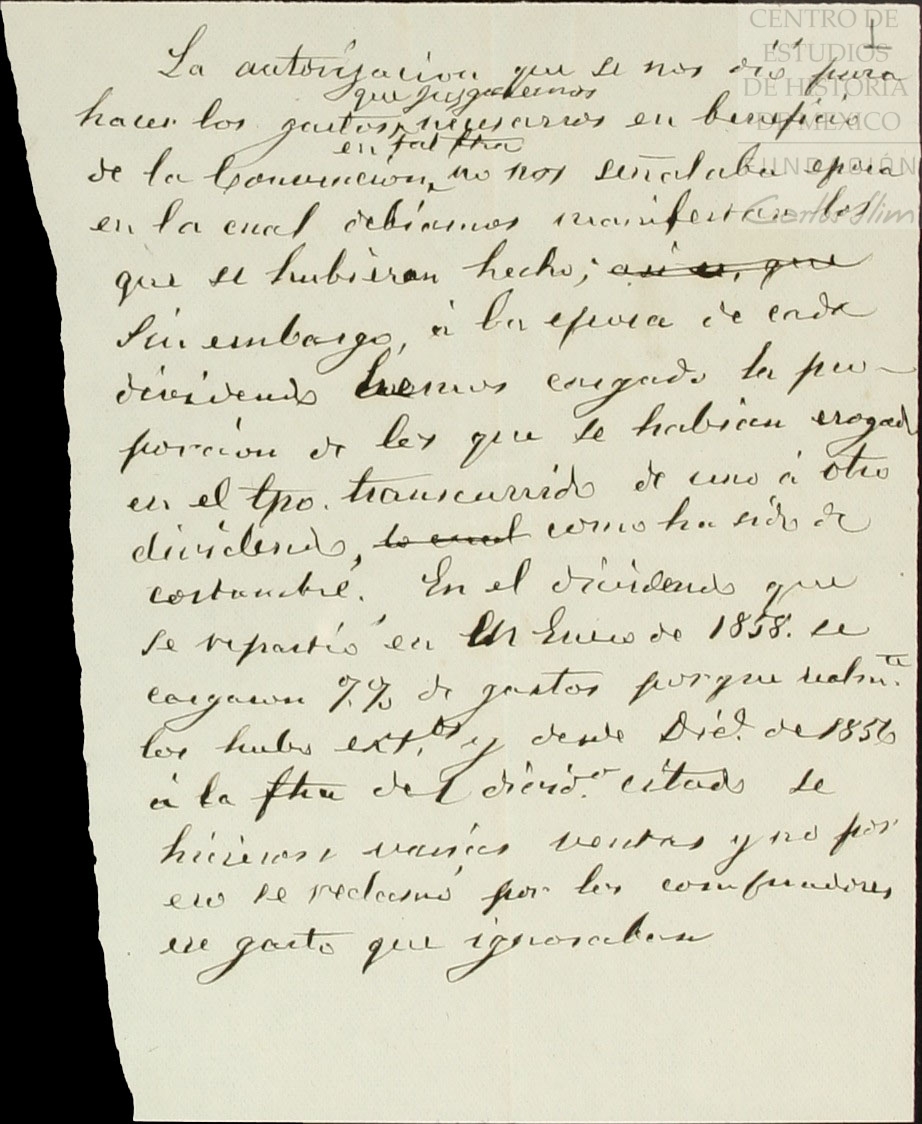 CENTRO DE
ESTUDIOS
DE HISTORIA
DE MÉXICO
FUNDACIÓN
Carlos Slim
1
La autorizacion que se nos dió para
que juzgaremos
hacer los gastos necesarios en beneficio
en tal fha
de la Convencion, no nos señalaba epoca
en la cual debiamos manifestar los
que se hubieran hecho; asi es, que
Sin embargo, á la epoca de cada
dividendo hemos cargado la pro-
porcion de los que se habian erogado
en el tpo. transcurrido de uno á otro
dividendo, lo cual como ha sido de
costumbre. En el dividendo que
se repartió en Enero de 1858. se
cargaron 7.% de gastos porque realmte.
los hubo ext.os y desde Dic.e de 1856
á la fha del divid.o citado se
hicieron varias ventas y no por
eso se reclamó por los compradores
ese gasto que ignoraban